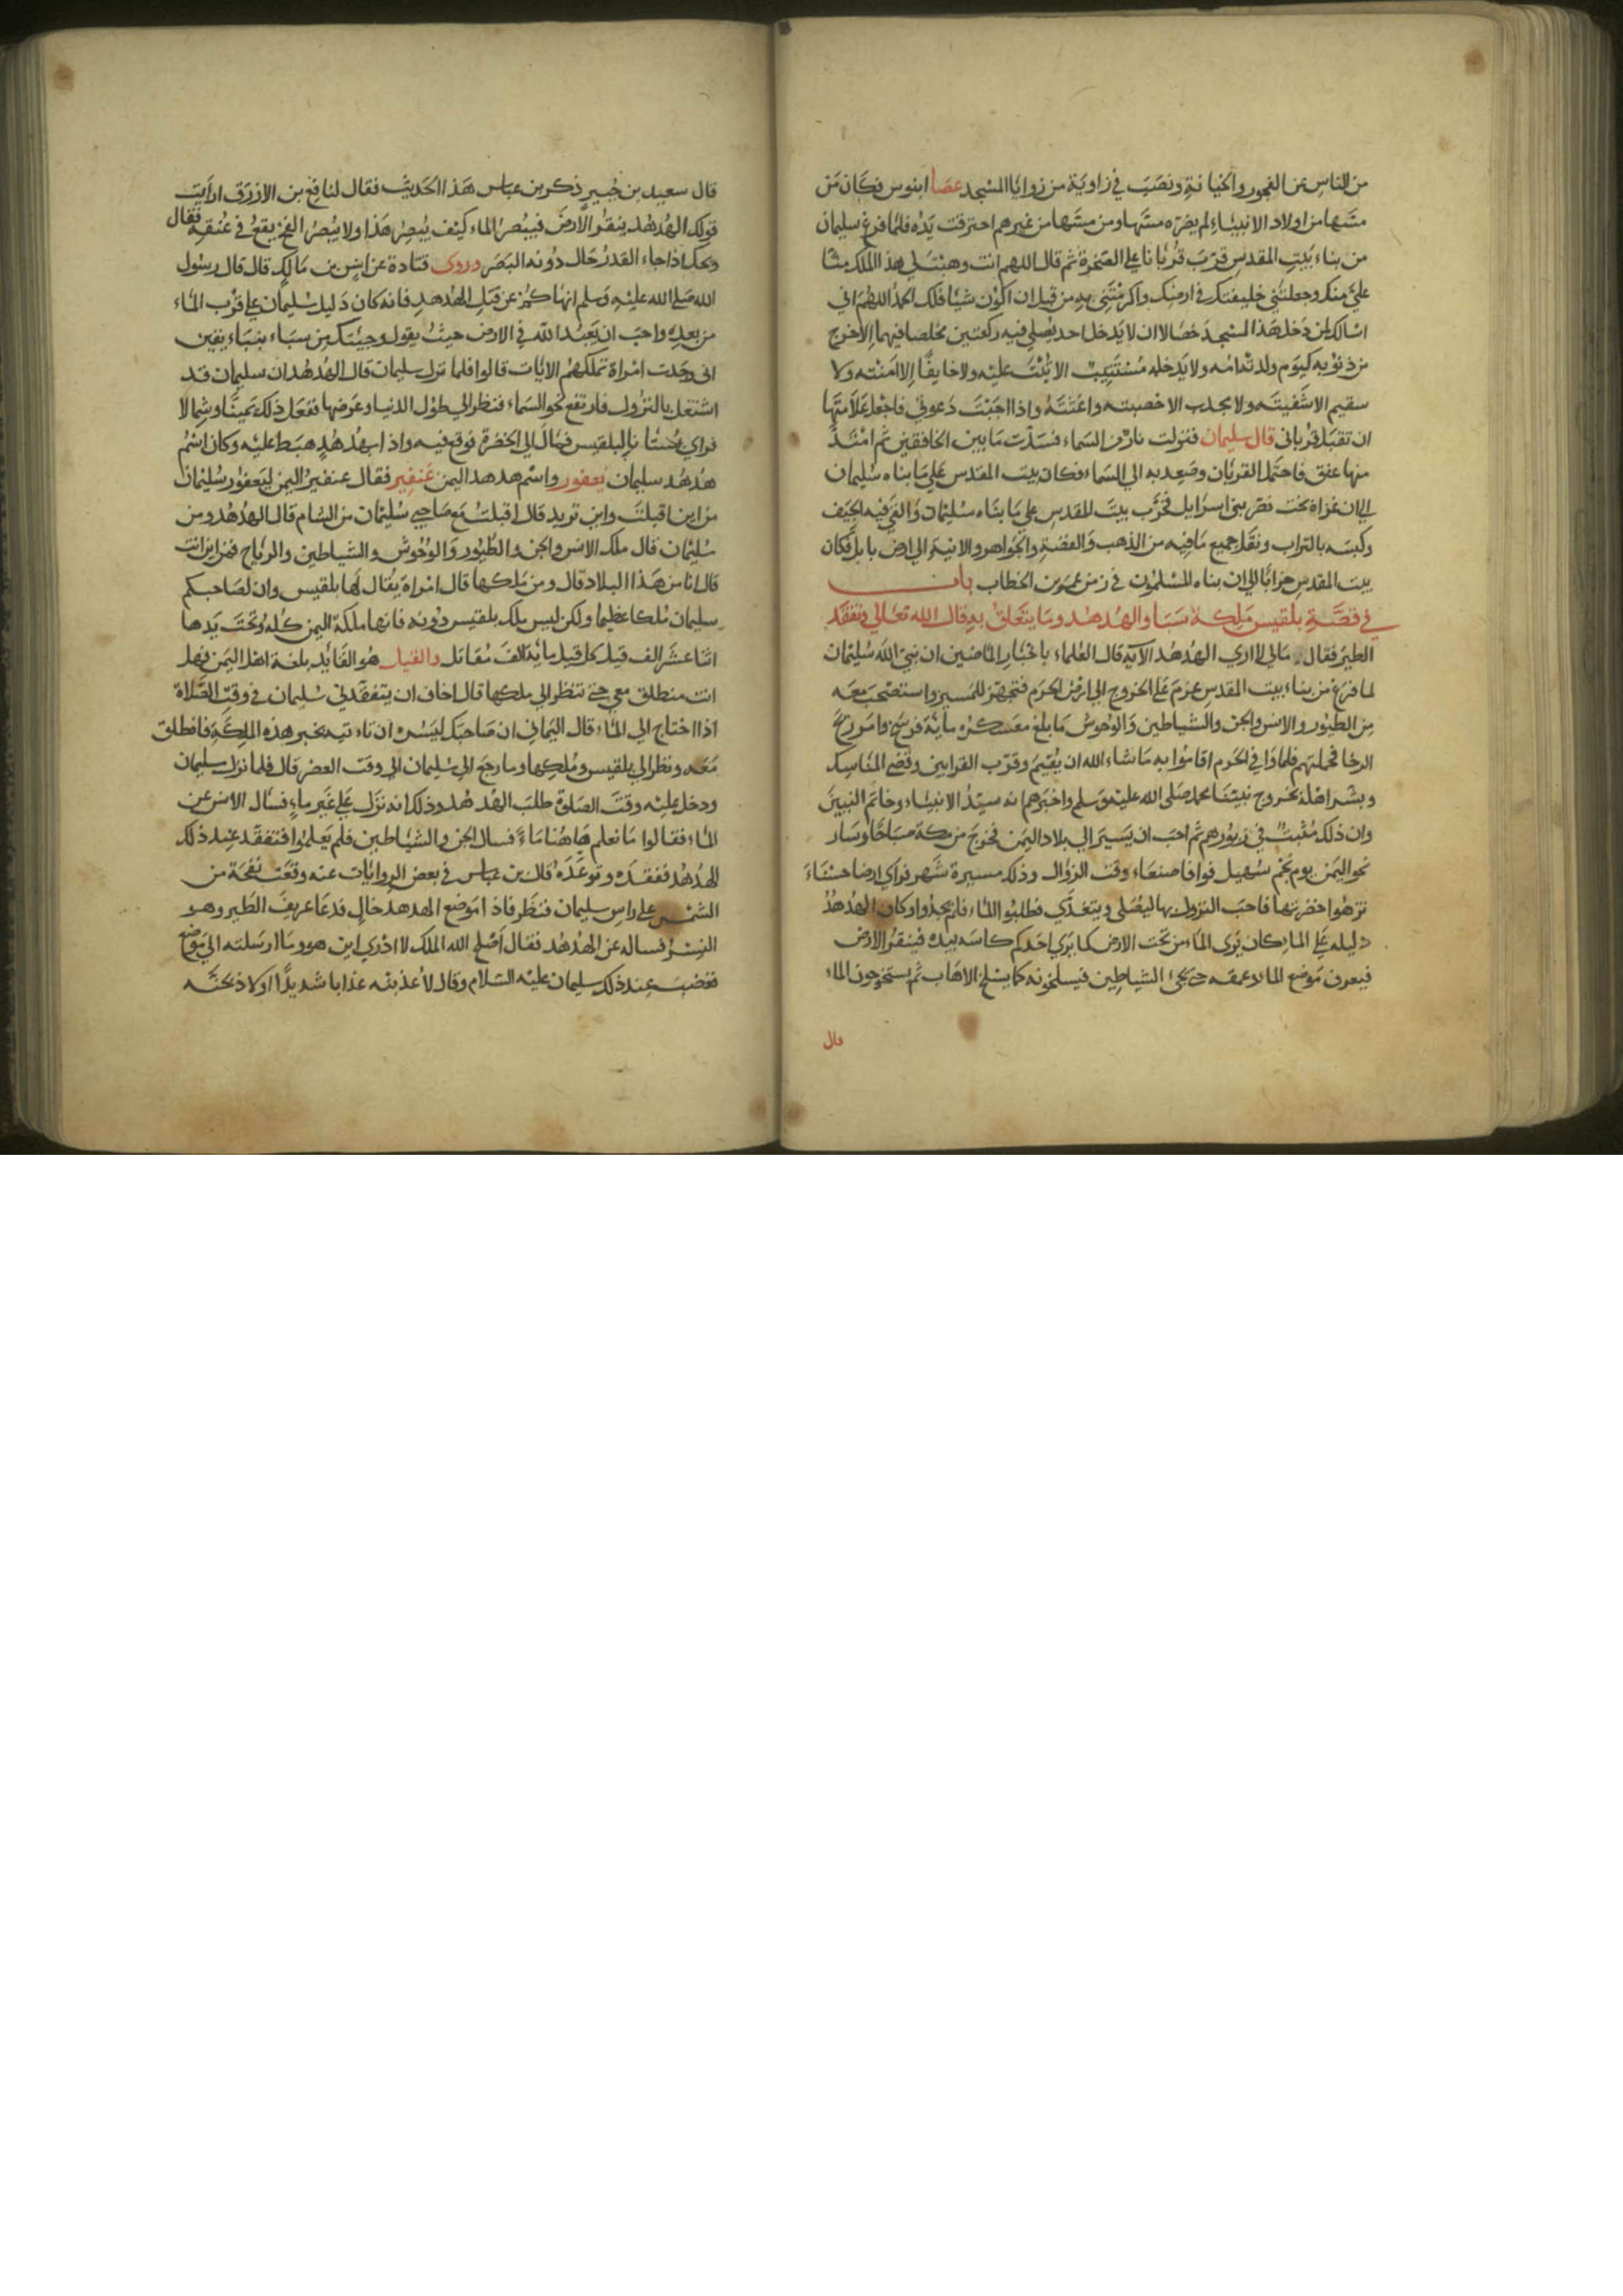 من الناس عن الفجور والخيانة ونصب في زاوية من زوايا المسجد عصا ابنوس فكان من
مسها من اولاد الانبياء لم يضره مسها ومن مسها من غيرهم احترقت يده فلما فرغ سليمان
من بناء بيت المقدس قرب قربانا علي الصخرة ثم قال اللهم انت وهبت لي هذا الملك منا
علي منك وجعلتني خليفتك في ارضك واكرمتني به من قبل ان اكون شيئا فلك الحمد اللهم اني
اسالك لمن دخل هذا المسجد خصالا ان لا يدخل احد يصلي فيه ركعتين مخلصا فيهما الا خرج
من ذنوبه كيوم ولدته امه ولا يدخله مستتيب الا تبت عليه ولا خايفا الا امنته ولا
سقيم الا شفيته ولا بجدب الا خصبته واغثته واذا اجبت دعوتي فاجعل علامتها
ان تقبل قرباني قال سليمان فنزلت نار من السماء فسدت ما بين الخافقين ثم امتد
منها عنق فاحتمل القربان وصعد به الي السماء فكان بيت المقدس علي ما بناه سليمان
الي ان غزاه بخت نصر بني اسرايل فخرب بيت المقدس علي ما بناه سليمان والقي فيه الجيف
وكبسه بالتراب ونقل جميع ما فيه من الذهب والفضة والجواهر والانية الي ارض بابل فكان
بيت المقدس خرابا الي ان بناه المسلمون في زمن عمر بن الخطاب باب
في قصة بلقيس ملكة سبا والهدهد وما يتعلق به قال الله تعالي وتفقد
الطير فقال مالي لا اري الهدهد الآية قال العلماء باخبار الماضين ان نبي الله سليمان
لما فرغ من بناء بيت المقدس عزم علي الخروج الي ارض الحرم فتجهز للمسير واستصحب معه
من الطيور والانس والجن والشياطين والوحوش ما بلغ معسكره مائة فرسخ وامر ريح
الرخا فحملتهم فلما وافي الحرم اقاموا به ما شاء الله ان يقيم وقرب القرابين وقضي المناسك
وبشر اهله بخروج نبينا محمد صلى الله عليه وسلم واخبرهم انه سيد الانبياء وخاتم النبيين
وان ذلك مثبت في زبورهم ثم احب ان يسير الي بلاد اليمن فخرج من مكة صباحا وسار
نحو اليمن يوم نجم سهيل فوافا صنعاء وقت الزوال وذلك مسيرة شهر فراي ارضا حسناء
تزهوا خضرتها فاحب النزول بها ليصلي ويتغدي فطلبوا الماء فلم يجدوا وكان الهدهد
دليله علي الماء كان يري الماء من تحت الارض كما يري احدكم كاسه بيده فينقر الارض
فيعرف موضع الماء وعمقه حتي يجئ الشياطين فيسلخونه كما يسلخ الاهاب ثم يستخرجون الماء
قال
قال سعيد بن جبير ذكر بن عباس هذا الحديث فقال لنا نافع بن الازرق ارايت
قولك الهدهد ينقر الارض فيبصر الماء كيف يبصر هذا ولا يبصر الفخ يقع في عنقه فقال
ويحك اذا جاء القدر حال دونه البصر وروى قتادة عن انس بن مالك قال قال رسول
الله صلي الله عليه وسلم انهاكم عن قتل الهدهد فانه كان دليل سليمان علي قرب الماء
من بعده واحب ان يعبد الله في الارض حيث يقول وجئتك من سباء بنباء يقين
اني وجدت امراة تملكهم الايات قالوا فلما نزل سليمان قال الهدهد ان سليمان قد
اشتغل بالنزول فارتفع نحو السماء فنظر الي طول الدنيا وعرضها ففعل ذلك يمينا وشمالا
فراي بستانا لبلقيس فمال الي الخضرة فوقع فيه واذا بهدهد هبط عليه وكان اسم
هدهد سليمان يعفور واسم هدهد اليمن عنفير فقال عنفير اليمن ليعفور سليمان
من اين اقبلت واين تريد قال اقبلت مع صاحبي سليمان من الشام قال الهدهد ومن
سليمان قال ملك الانس والجن والطيور والوحوش والشياطين والرياح فمن اين انت
قال انا من هذا البلاد قال ومن ملكها قال امراة يقال لها بلقيس وان لصاحبكم
سليمان ملكا عظيما ولكن ليس ملك بلقيس دونه فانها ملكة اليمن كله وتحت يدها
اثنا عشر الف قيل كل قيل مائة الف مقاتل والقيل هو القايد بلغة اهل اليمن فهل
انت منطلق معي حتي تنظر الي ملكها قال اخاف ان يتفقدني سليمان في وقت الصلاة
اذا احتاج الي الماء قال اليماني ان صاحبك ليسره ان تاءتيه بخبر هذه الملكة فانطلق
معه ونظر الي بلقيس وملكها وما رجع الي سليمان الي وقت العصر قال فلما نزل سليمان
ودخل عليه وقت الصلاة طلب الهدهد وذلك انه نزل علي غير ماء فسال الانس عن
الماء فقالوا ما نعلم هاهنا ماء فسال الجن والشياطين فلم يعلموا فتفقد عند ذلك
الهدهد ففقده وتوعده قال بن عباس في بعض الروايات عنه وقعت نفحة من
الشمس علي راس سليمان فنظر فاذا موضع الهدهد خال فدعا عريف الطير وهو
النسر فساله عن الهدهد فقال اصلح الله الملك لا ادري اين هو وما ارسلته الي موضع
فغضب عند ذلك سليمان عليه السلام وقال لاعذبنه عذابا شديدا او لاذبحنه